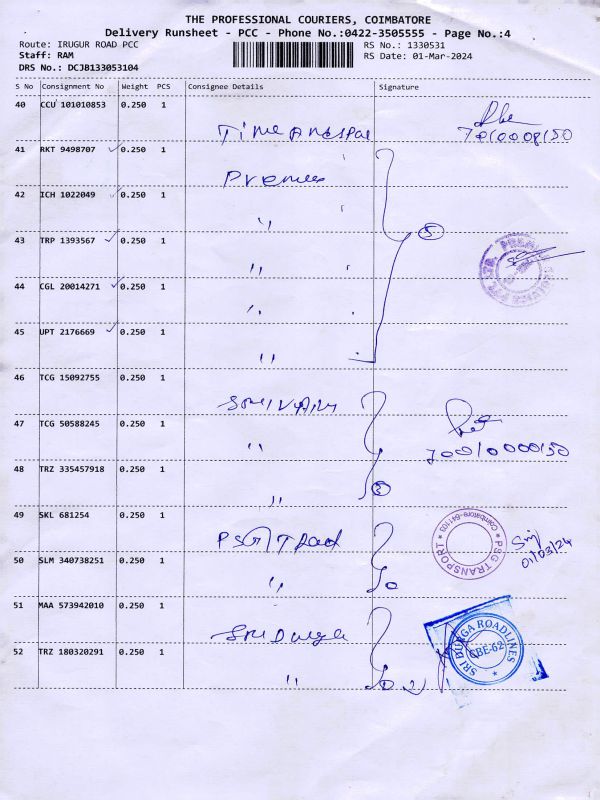 THE PROFESSIONAL COURIERS, COIMBATORE
Delivery Runsheet - PCC - Phone No.:0422-3505555 - Page No.:4
Route: IRUGUR ROAD PCC RS No.: 1330531
Staff: RAM RS Date: 01-Mar-2024
DRS No.: DCJB133053104
S No Consignment No Weight PCS Consignee Details Signature
40 CCU 101010853 0.250 1
41 RKT 9498707 0.250 1
42 ICH 1022049 0.250 1
〃
43 TRP 1393567 0.250 1 5
〃
44 CGL 20014271 0.250 1
〃
45 UPT 2176669 0.250 1
〃
46 TCG 15092755 0.250 1
47 TCG 50588245 0.250 1
〃
48 TRZ 335457918 0.250 1
〃 3
49 SKL 681254 0.250 1
PSG
PSG TRANSPORT
Coimbatore-641103
01/03/24
50 SLM 340738251 0.250 1
〃
51 MAA 573942010 0.250 1
Sri Durga
SRI DURGA ROADLINES
CBE-62
52 TRZ 180320291 0.250 1
〃